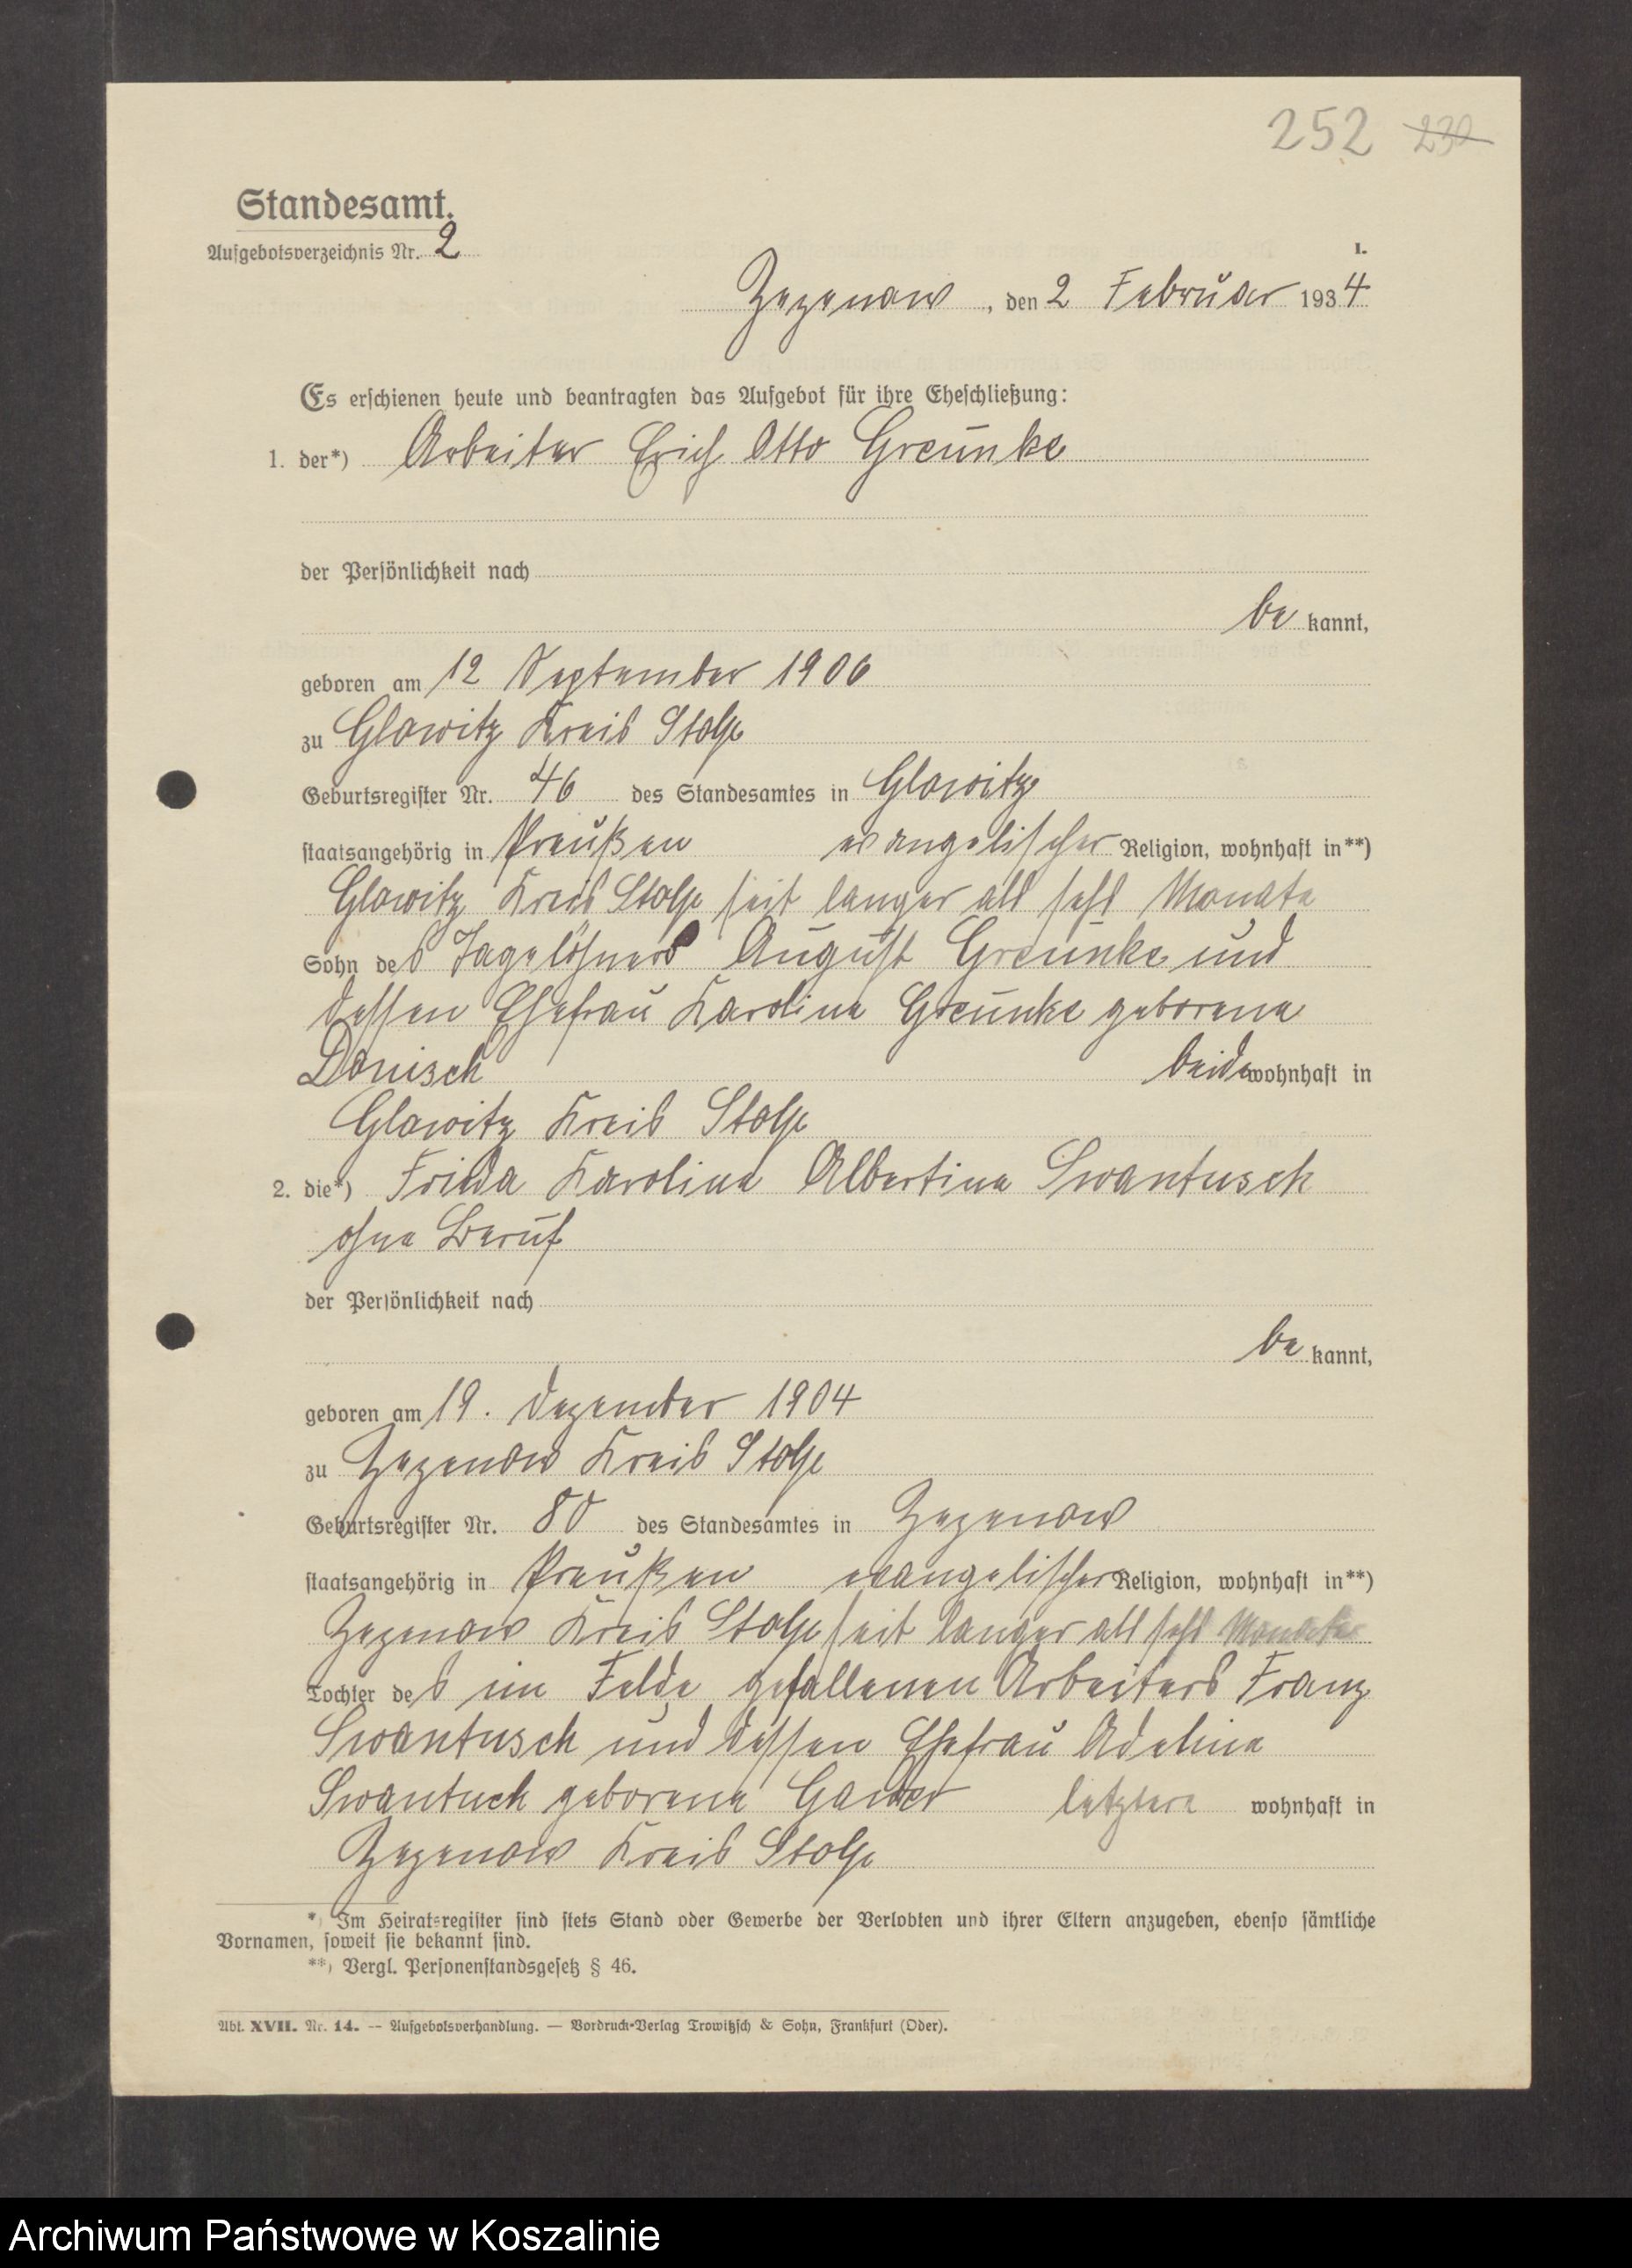 252 230
Standesamt.
Aufgebotsverzeichnis Nr. 2
1.
Zezenow, den 2 Februar 1934
Es erschienen heute und beantragten das Aufgebot für ihre Eheschließung:
1. der*) Arbeiter Erich Otto Greunke
der Persönlichkeit nach
be kannt,
geboren am 12 September 1906
zu Glowitz Kreis Stolp
Geburtsregister Nr. 46 des Standesamtes in Glowitz
staatsangehörig in Preußen evangelischer Religion, wohnhaft in**)
Glowitz Kreis Stolp seit langer als sechs Monate
Sohn des Tagelöhners August Greunke und
dessen Ehefrau Karoline Greunke geborene
Donisch beide wohnhaft in
Glowitz Kreis Stolp
2. die*) Frieda Karoline Albertine Swantusch
ohne Beruf
der Persönlichkeit nach
be kannt,
geboren am 19. Dezember 1904
zu Zezenow Kreis Stolp
Geburtsregister Nr. 80 des Standesamtes in Zezenow
staatsangehörig in Preußen evangelischer Religion, wohnhaft in**)
Zezenow Kreis Stolp seit langer als sechs Monate
Tochter des im Felde gefallenen Arbeiters Franz
Swantusch und dessen Ehefrau Adeline
Swantuch geborene wohnhaft in letztere
Zezenow Kreis Stolp
*) Im Heiratsregister sind stets Stand oder Gewerbe der Verlobten und ihrer Eltern anzugeben, ebenso sämtliche
Vornamen, soweit sie bekannt sind.
**) Vergl. Personenstandsgesetz § 46.
Abt. XVII. Nr. 14. -- Aufgebotsverhandlung. — Vordruck-Verlag Trowitzsch & Sohn, Frankfurt (Oder).
Archiwum Państwowe w Koszalinie